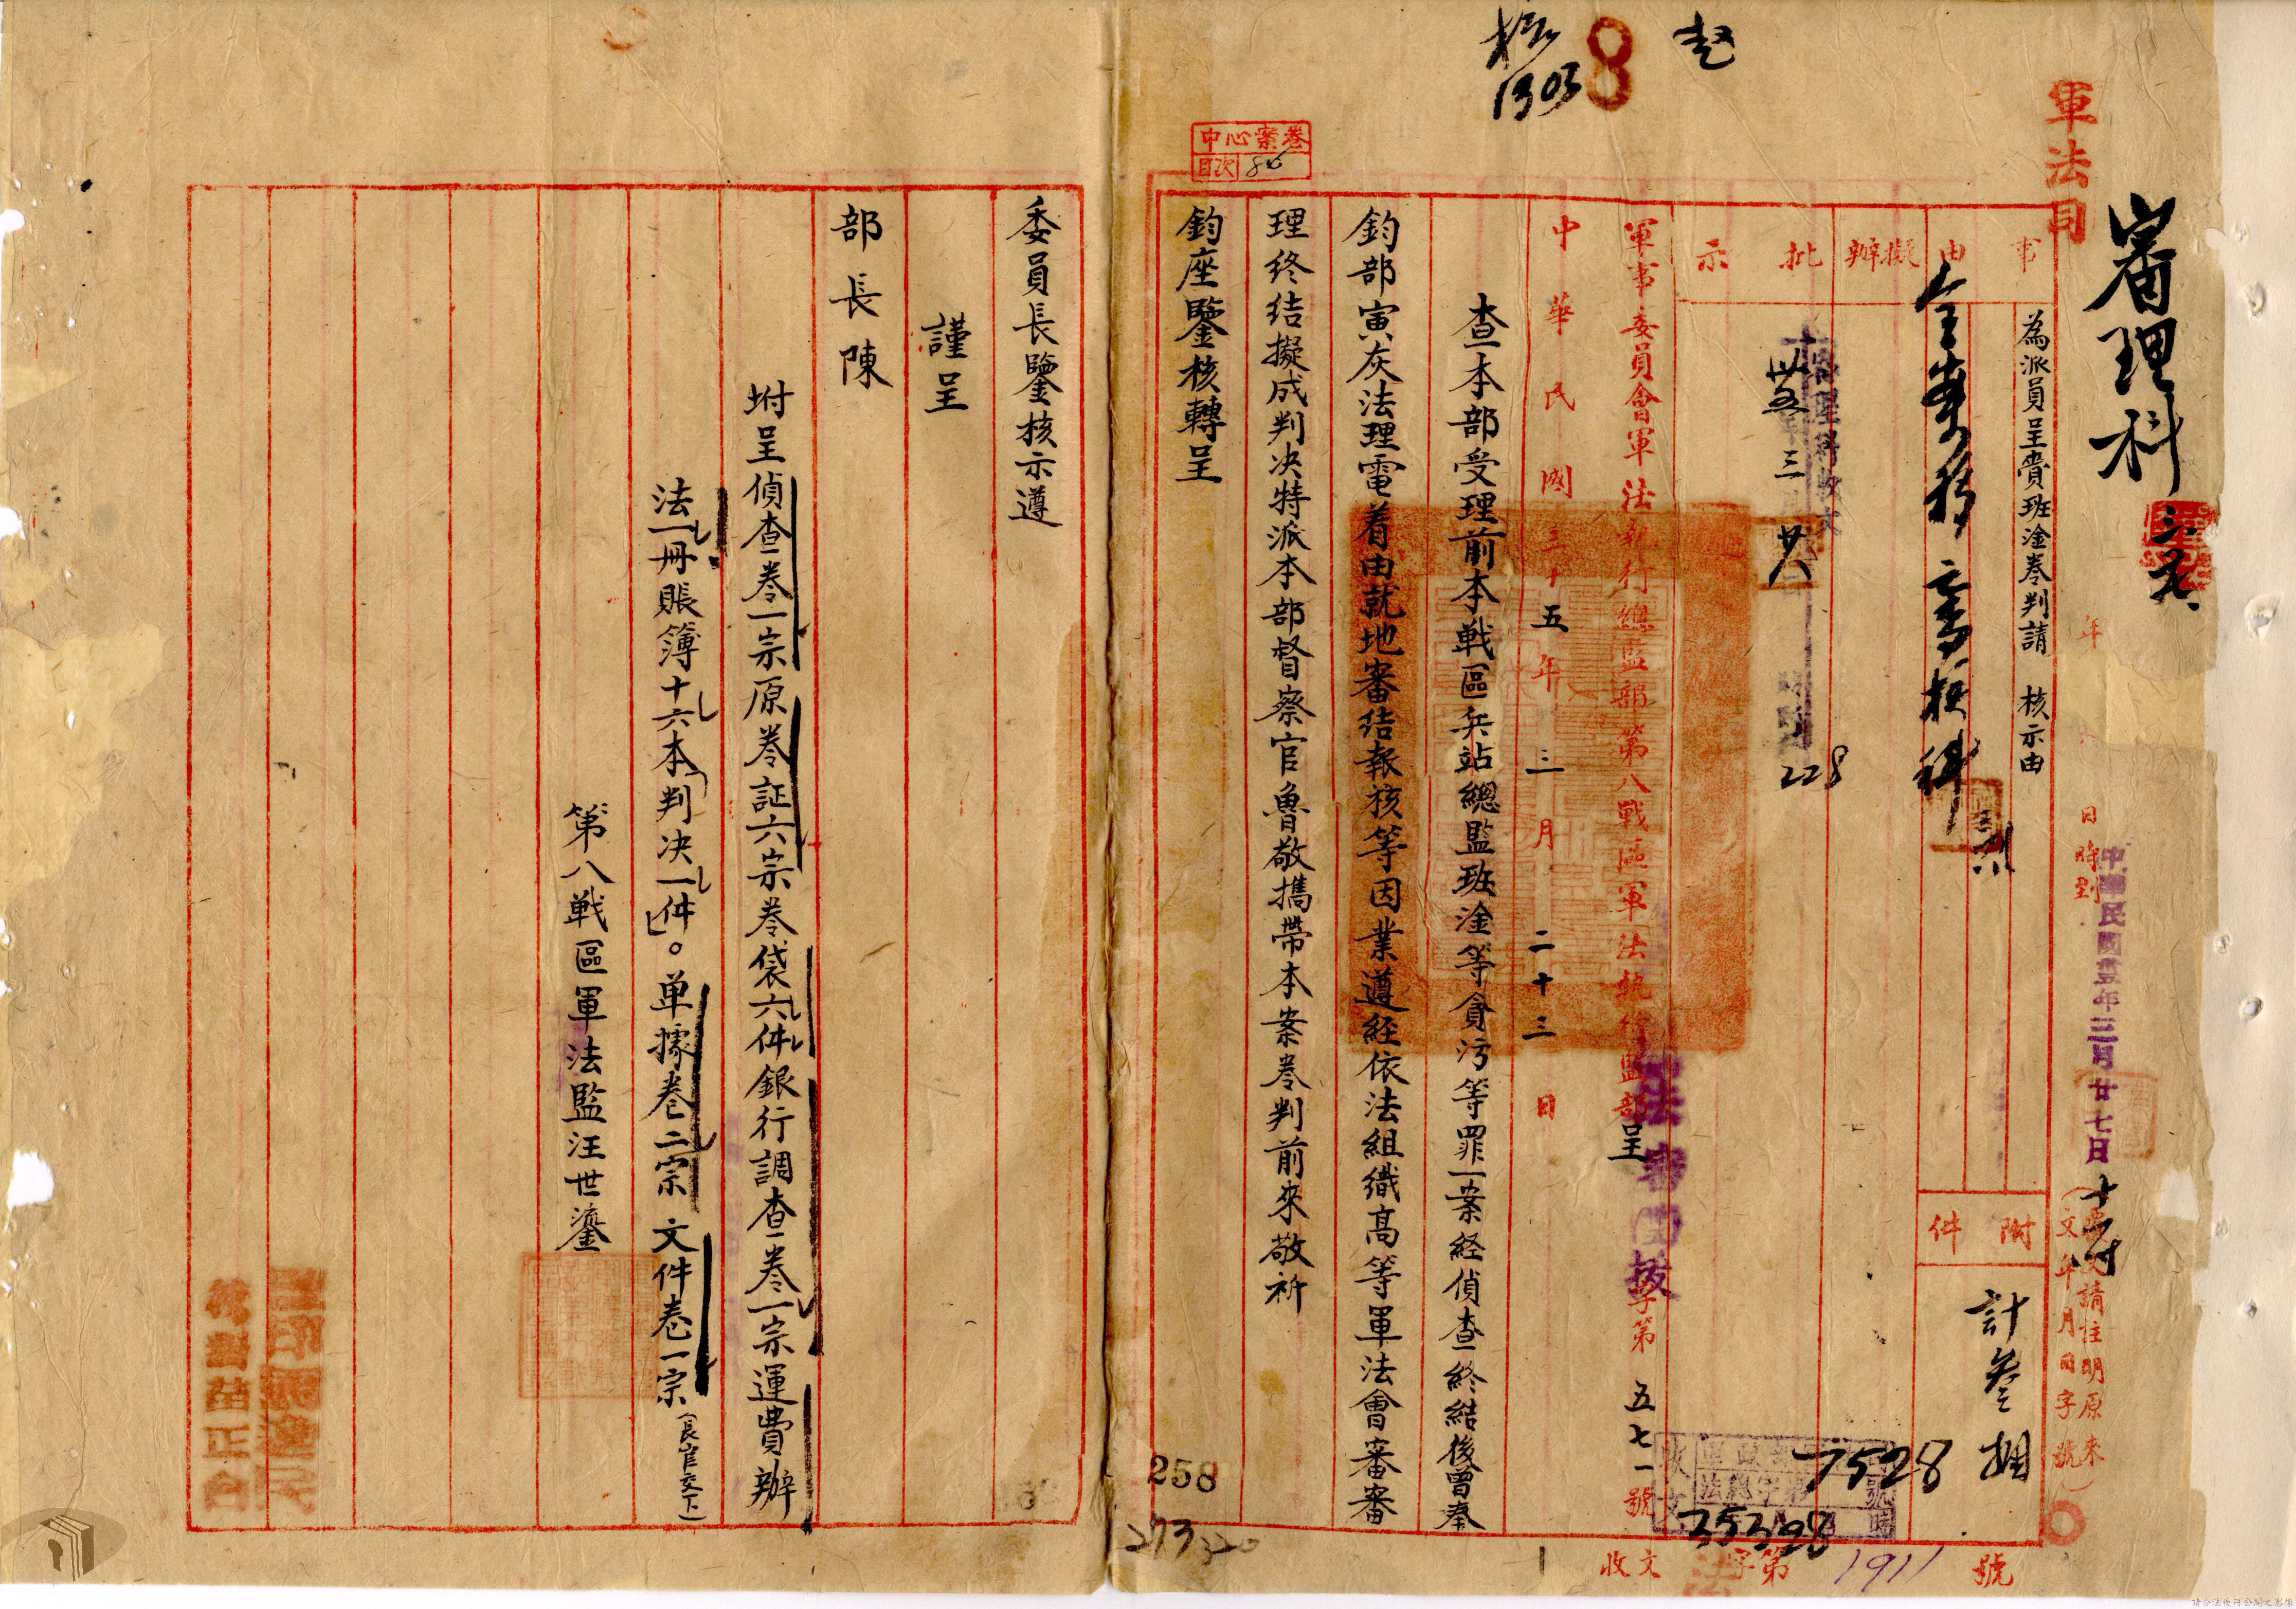 軍法司
審理科
中華民國卅五年三月廿七日
年 月 日 時到
事由
為派員呈賫班淦卷判請 核示由
附件
計叁捆
擬辦
批示
卅五 三 廿八
228
7528
25398
軍事委員會軍法執行總監部第八戰區軍法執行監部呈
字第五七一號
中華民國三十五年三月二十三日
查本部受理前本戰區兵站總監班淦等貪污等罪一案経偵查終結後曾奉
鈞部寅灰法理電着由就地審結報核等因業遵経依法組織高等軍法會審審
理終結擬成判决特派本部督察官魯敬攜帶本案卷判前來敬祈
鈞座鑒核轉呈
委員長鑒核示遵
謹呈
部長陳
坿呈偵查卷一宗原卷証六宗卷袋六件銀行調查卷一宗運費辦
法一冊賬簿十六本判决一件。单據卷二宗 文件卷一宗(長官交下)
第八戰區軍法監汪世鎏
中心案卷
目次 86
8
1303
258
273
320
收文 字第 1911 號
請合法使用公開之影像